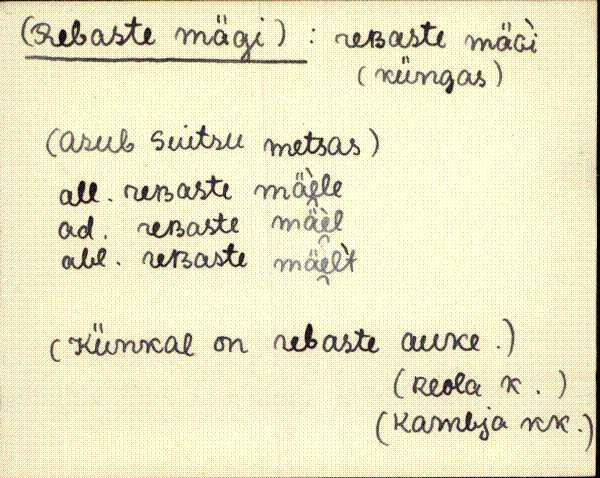 (Rebaste mägi) : reʙaste mäɢ̀i
(küngas)
(asub Suitsu metsas)
all. reʙaste mäè̬le
ad. reʙaste mäè̬l
abl. reʙaste mäe̬l̀t
(Künkal on rebaste auke.)
(Reola k.)
(Kambja kk.)